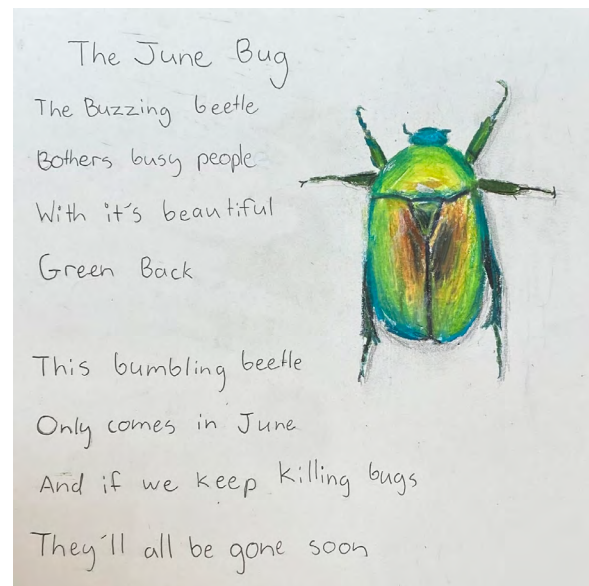 The June Bug
The Buzzing beetle
Bothers busy people
With it's beautiful
Green Back
This bumbling beetle
Only comes in June
And if we keep killing bugs
They'll all be gone soon